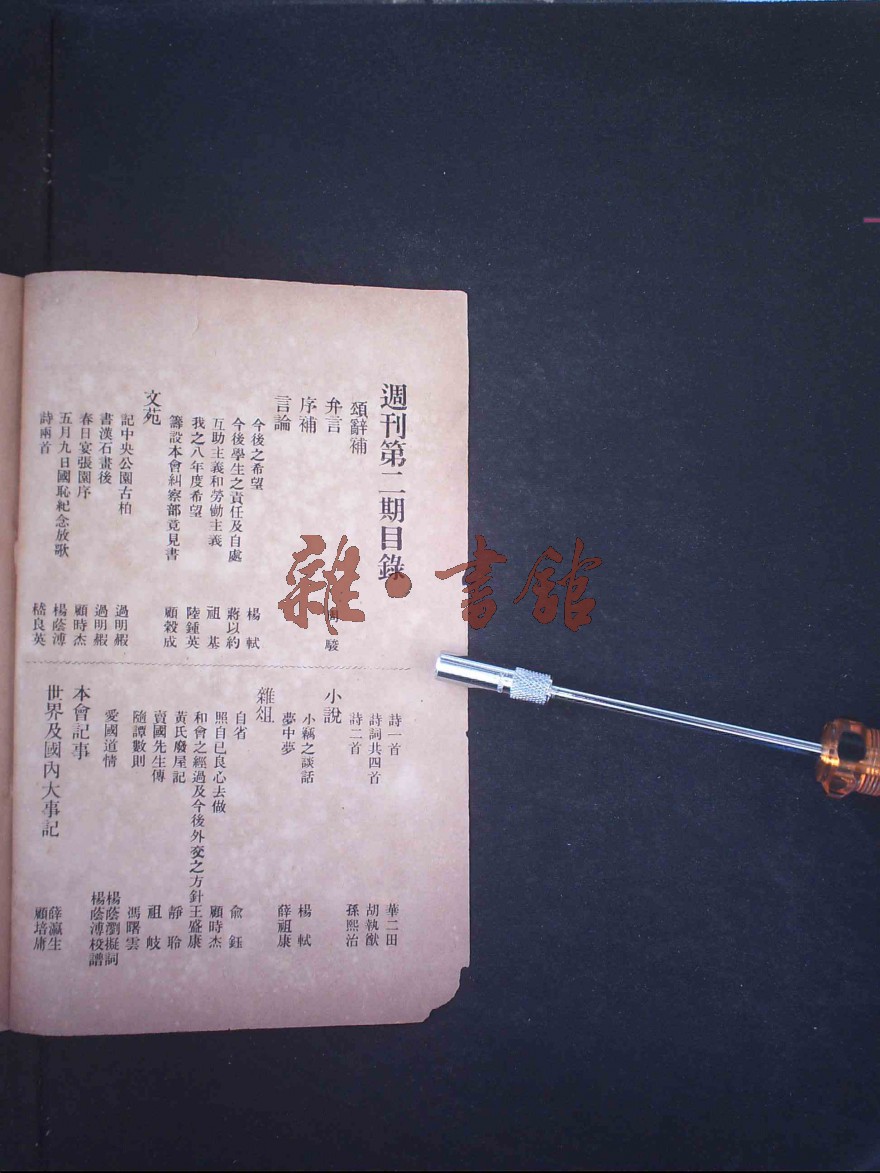 週刊第二期目錄
頌辭補
弁言
駿
序補
言論
今後之希望 楊軾
今後學生之責任及自處 蔣以約
互助主義和勞働主義 祖基
我之八年度希望 陸鍾英
籌設本會糾察部竟見書 顧榖成
文苑
記中央公園古柏 過明嘏
書漢石畫後 過明嘏
春日宴張園序 顧時杰
五月九日國恥紀念放歌 楊蔭溥
詩兩首 嵇良英
詩一首 華二田
詩詞共四首 胡執猷
詩二首 孫熙治
小說
小竊之談話 楊軾
夢中夢 薛祖康
雜俎
自省 俞鈺
照自已良心去做 顧時杰
和會之經過及今後外交之方針 王盛康
黃氏廢屋記 靜聆
賣國先生傳 祖岐
隨譚數則 馮曙雲
愛國道情 楊蔭瀏擬詞
楊蔭溥校譜
本會記事 薛瀛生
世界及國內大事記 顧培庸
雜·書館